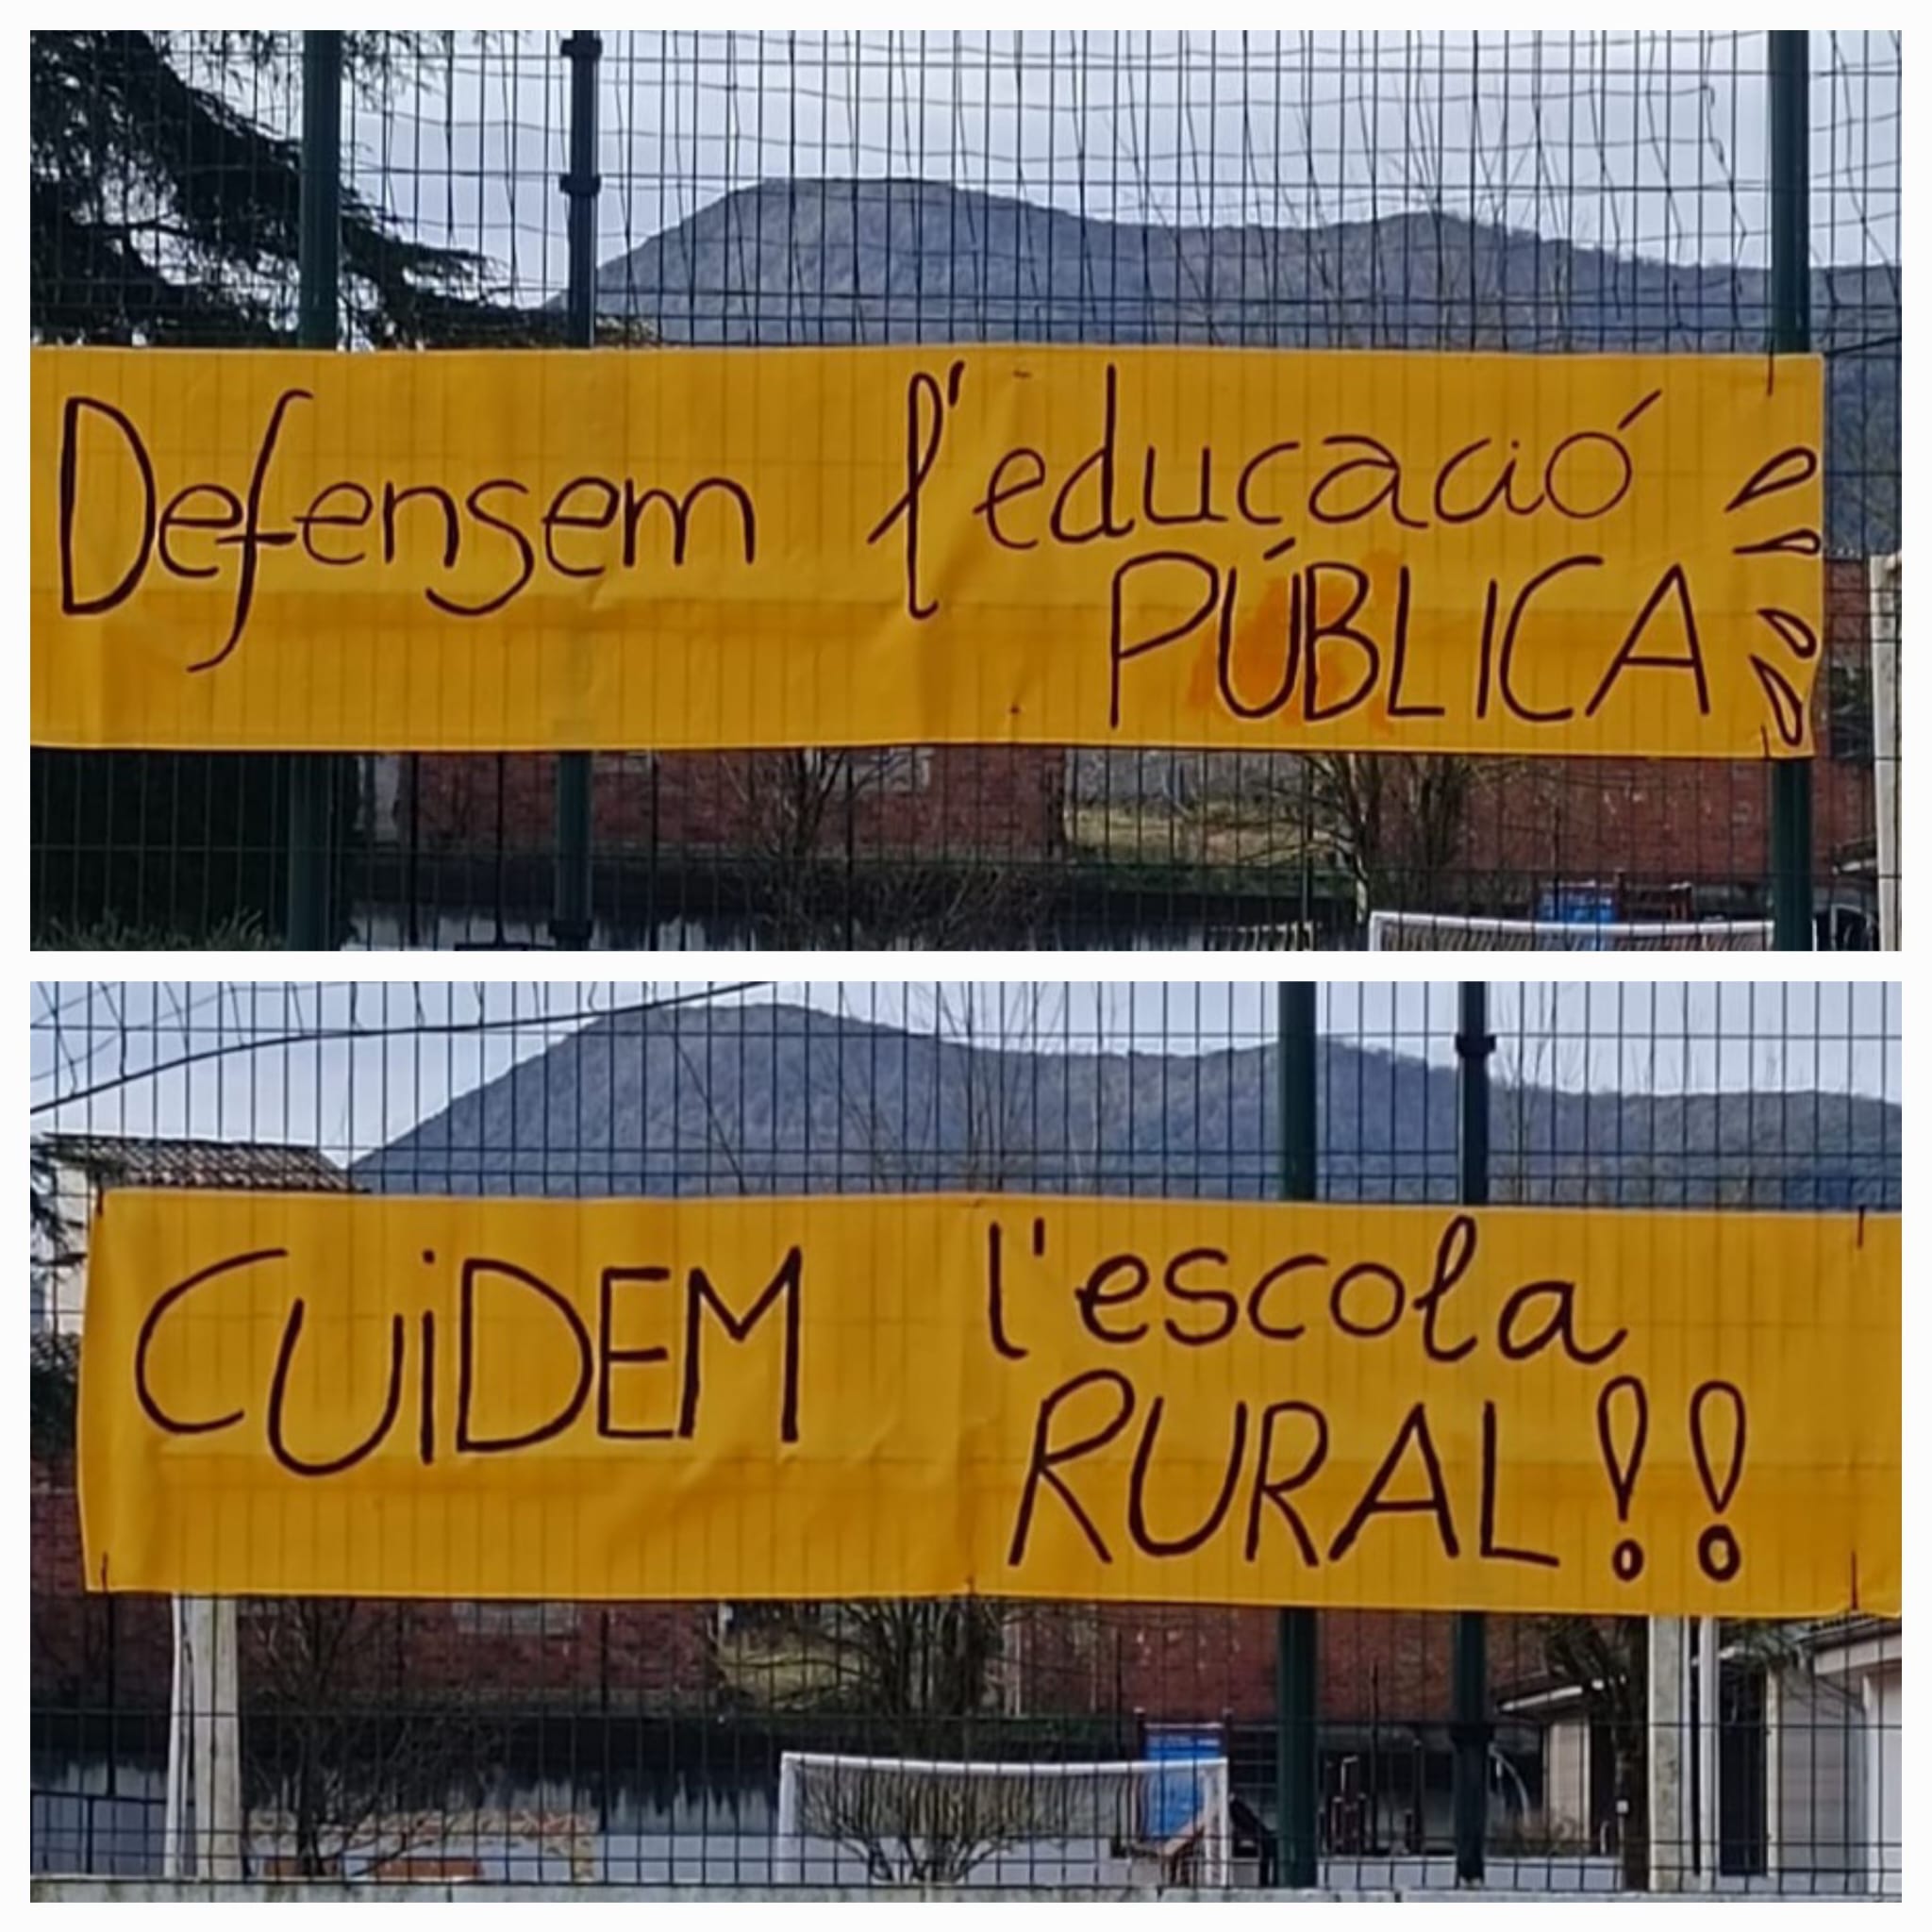 Defensem l'educació
PÚBLICA
CUiDEM l'escola
RURAL!!